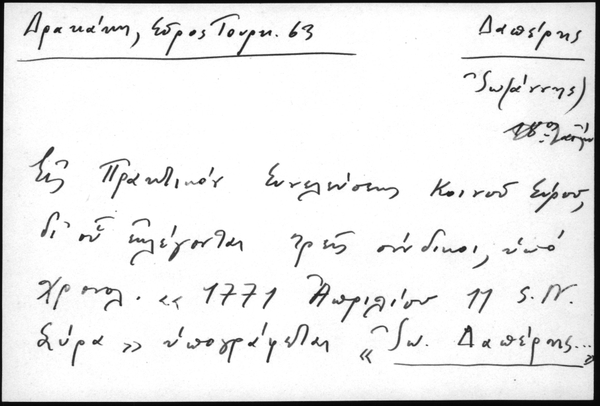 Δρακάκη, Σύρος Τουρκ. 63
Δαπέρης
Ἰω(άννης)
18ος
Εἰς Πρακτικόν Συνελεύσεως Κοινοῦ Σύρου,
δι' οὗ ἐκλέγονται τρεῖς σύνδικοι, ὑπό
χρονολ. «1771 Ἀπριλίου 11 S. N.
Σύρα» ὑπογράφεται «Ἰω. Δαπέρης...»